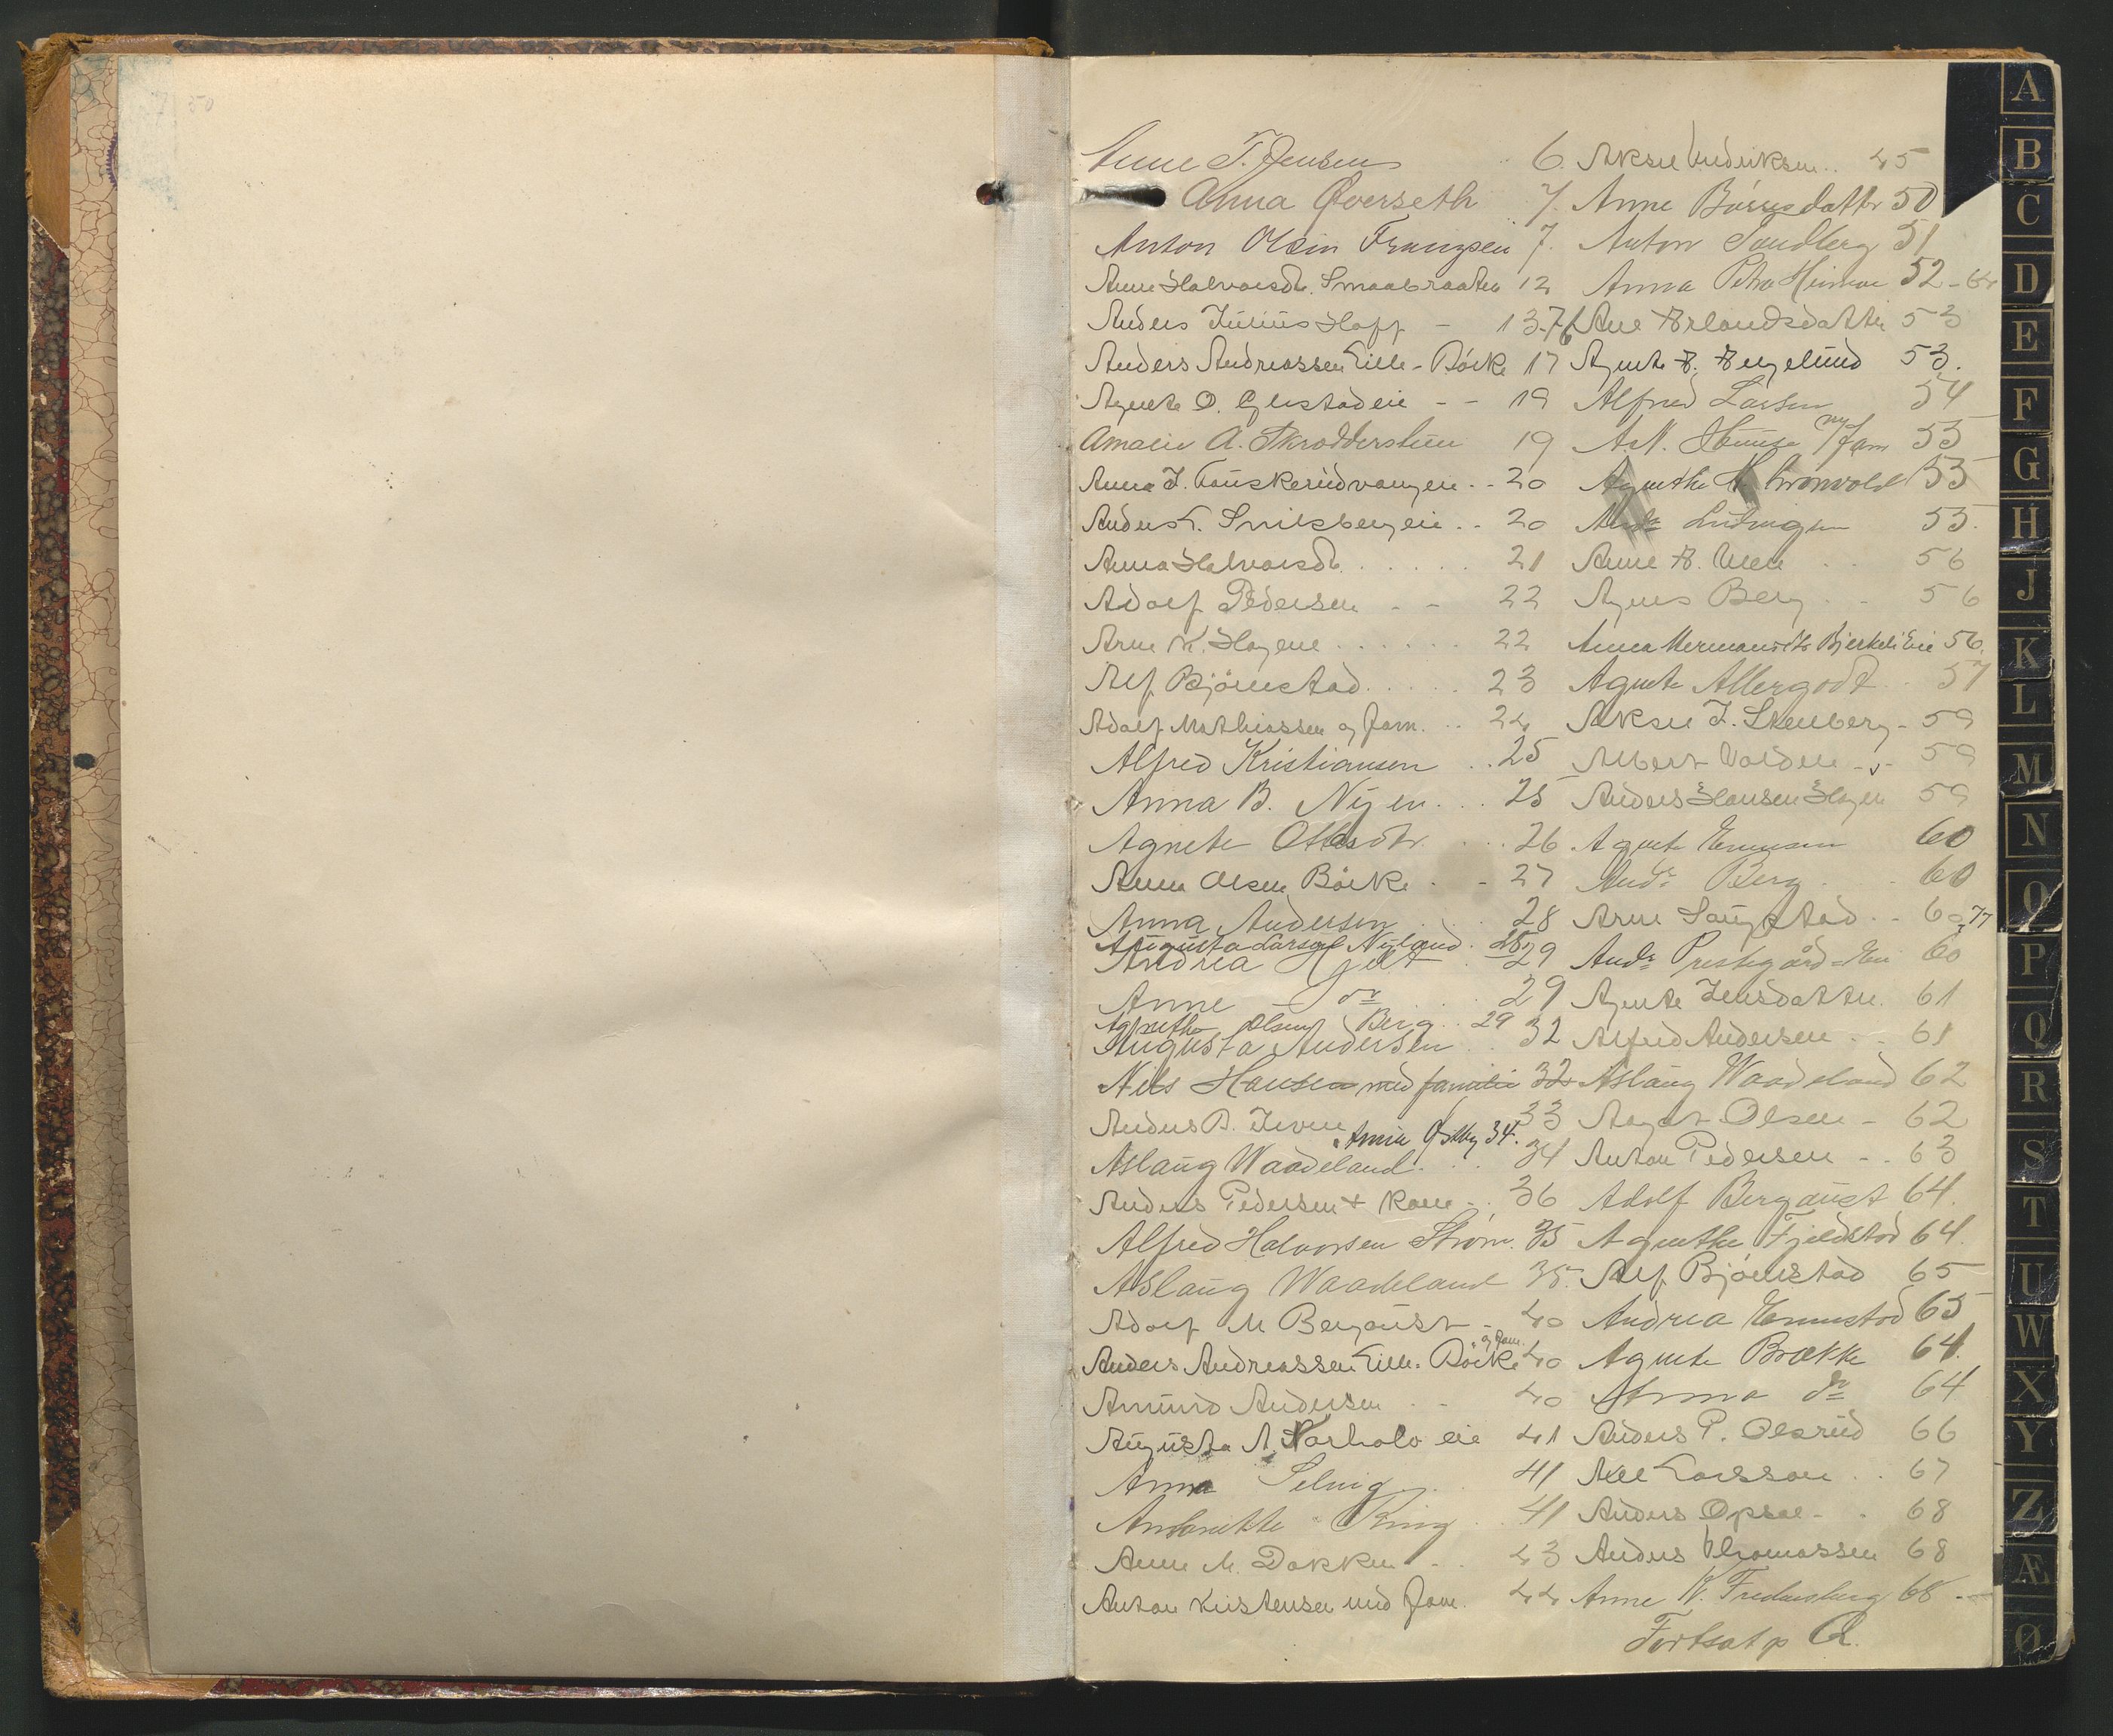 Anne T. Jensen 6.
Anna Överseth 7.
Anton Olsin Franzsen 7.
Anne Halvorsdtr. Smaabraaten 12
Anders Julius Hoff - 13-76
Anders Andreassen Lille-Böcke 17
Agnete O. eie - - 19
Amalie A. Skrodderstuen 19
Anna J. vangen - - 20
Anders L. Snilsberg eie - - 20
Anna Halvorsdtr. 21
Adolf Pedersen - - 22
Arne K. Hagene 22
Alf Björnstad 23
Adolf Mathiassen og fam. 24
Alfred Kristiansen 25
Anna B. Nyen 25
Agnete Ottesdtr. 26
Anna Olsen Böcke - - 27
Anna Andersen 28
Augusta Larsen Nyland 28
Andrea Hjelt 29
Anne do 29
Agnethe Olsen Berg 29
Augusta Andersen 32
Nils Hansen med familie 32
Anders B. 33
Annie Østby 34.
Aslaug Waadeland 34
Anders Pedersen + Kone - 36
Alfred Halvorsen Strøm. 35
Aslaug Waadeland 35.
Adolf M Bergqvist - 40
Anders Andreassen Lille-Böcke og fam. 40
Amund Andersen - - 40
Augusta A. Norholo eie 41
Anna Selvig 41
Antonette Ring 41
Anne M. Dokken - - 43
Anton Kristensen med fam. 44
Aksel Hendriksen 45
Anne Börresdattr 50
Anton Sandberg 51
Anna Petra 52-64
Ane Erlandsdatter 53
Agnete E. Engelund 53.
Alfred Larsen 54
A. N. m/fam 55
Agnethe H. Grönvold 55
Andr. Ludvigsen 55.
Anne E. 56
Agnes Berg 56
Anna Hermansdtr Bjerkeli Eie 56.
Agnete Allergodt 57
Aksel J. Stenberg - 59
Albert Volden - 59
Anders Hansen Hagen 59
Agnete Ennesen 60
Andr. Berg 60
Arne Saugstad - - 60, 77
Andr. Prestegård-Eie 60
Agnete Jensdatter. 61
Alfred Andersen - - 61
Aslaug Waadeland 62
Aagot Olsen - 62
Anton Pedersen - - 63
Adolf Bergqvist 64.
Agnethe Fjeldstad 64.
Alf Björnstad 65
Andrea Ennestad 65
Agnete Brække 64.
Anna do 64
Anders P. Olsrud 66
Axel Larsson 67
Anders Opsal - - 68
Anders Thomassen 68
Anne K. Fredensberg 68 -
Fortsat p Q.
A
B
C
D
E
F
G
H
J
K
L
M
N
O
P
Q
R
S
T
U
W
X
Y
Z
Æ
Ø